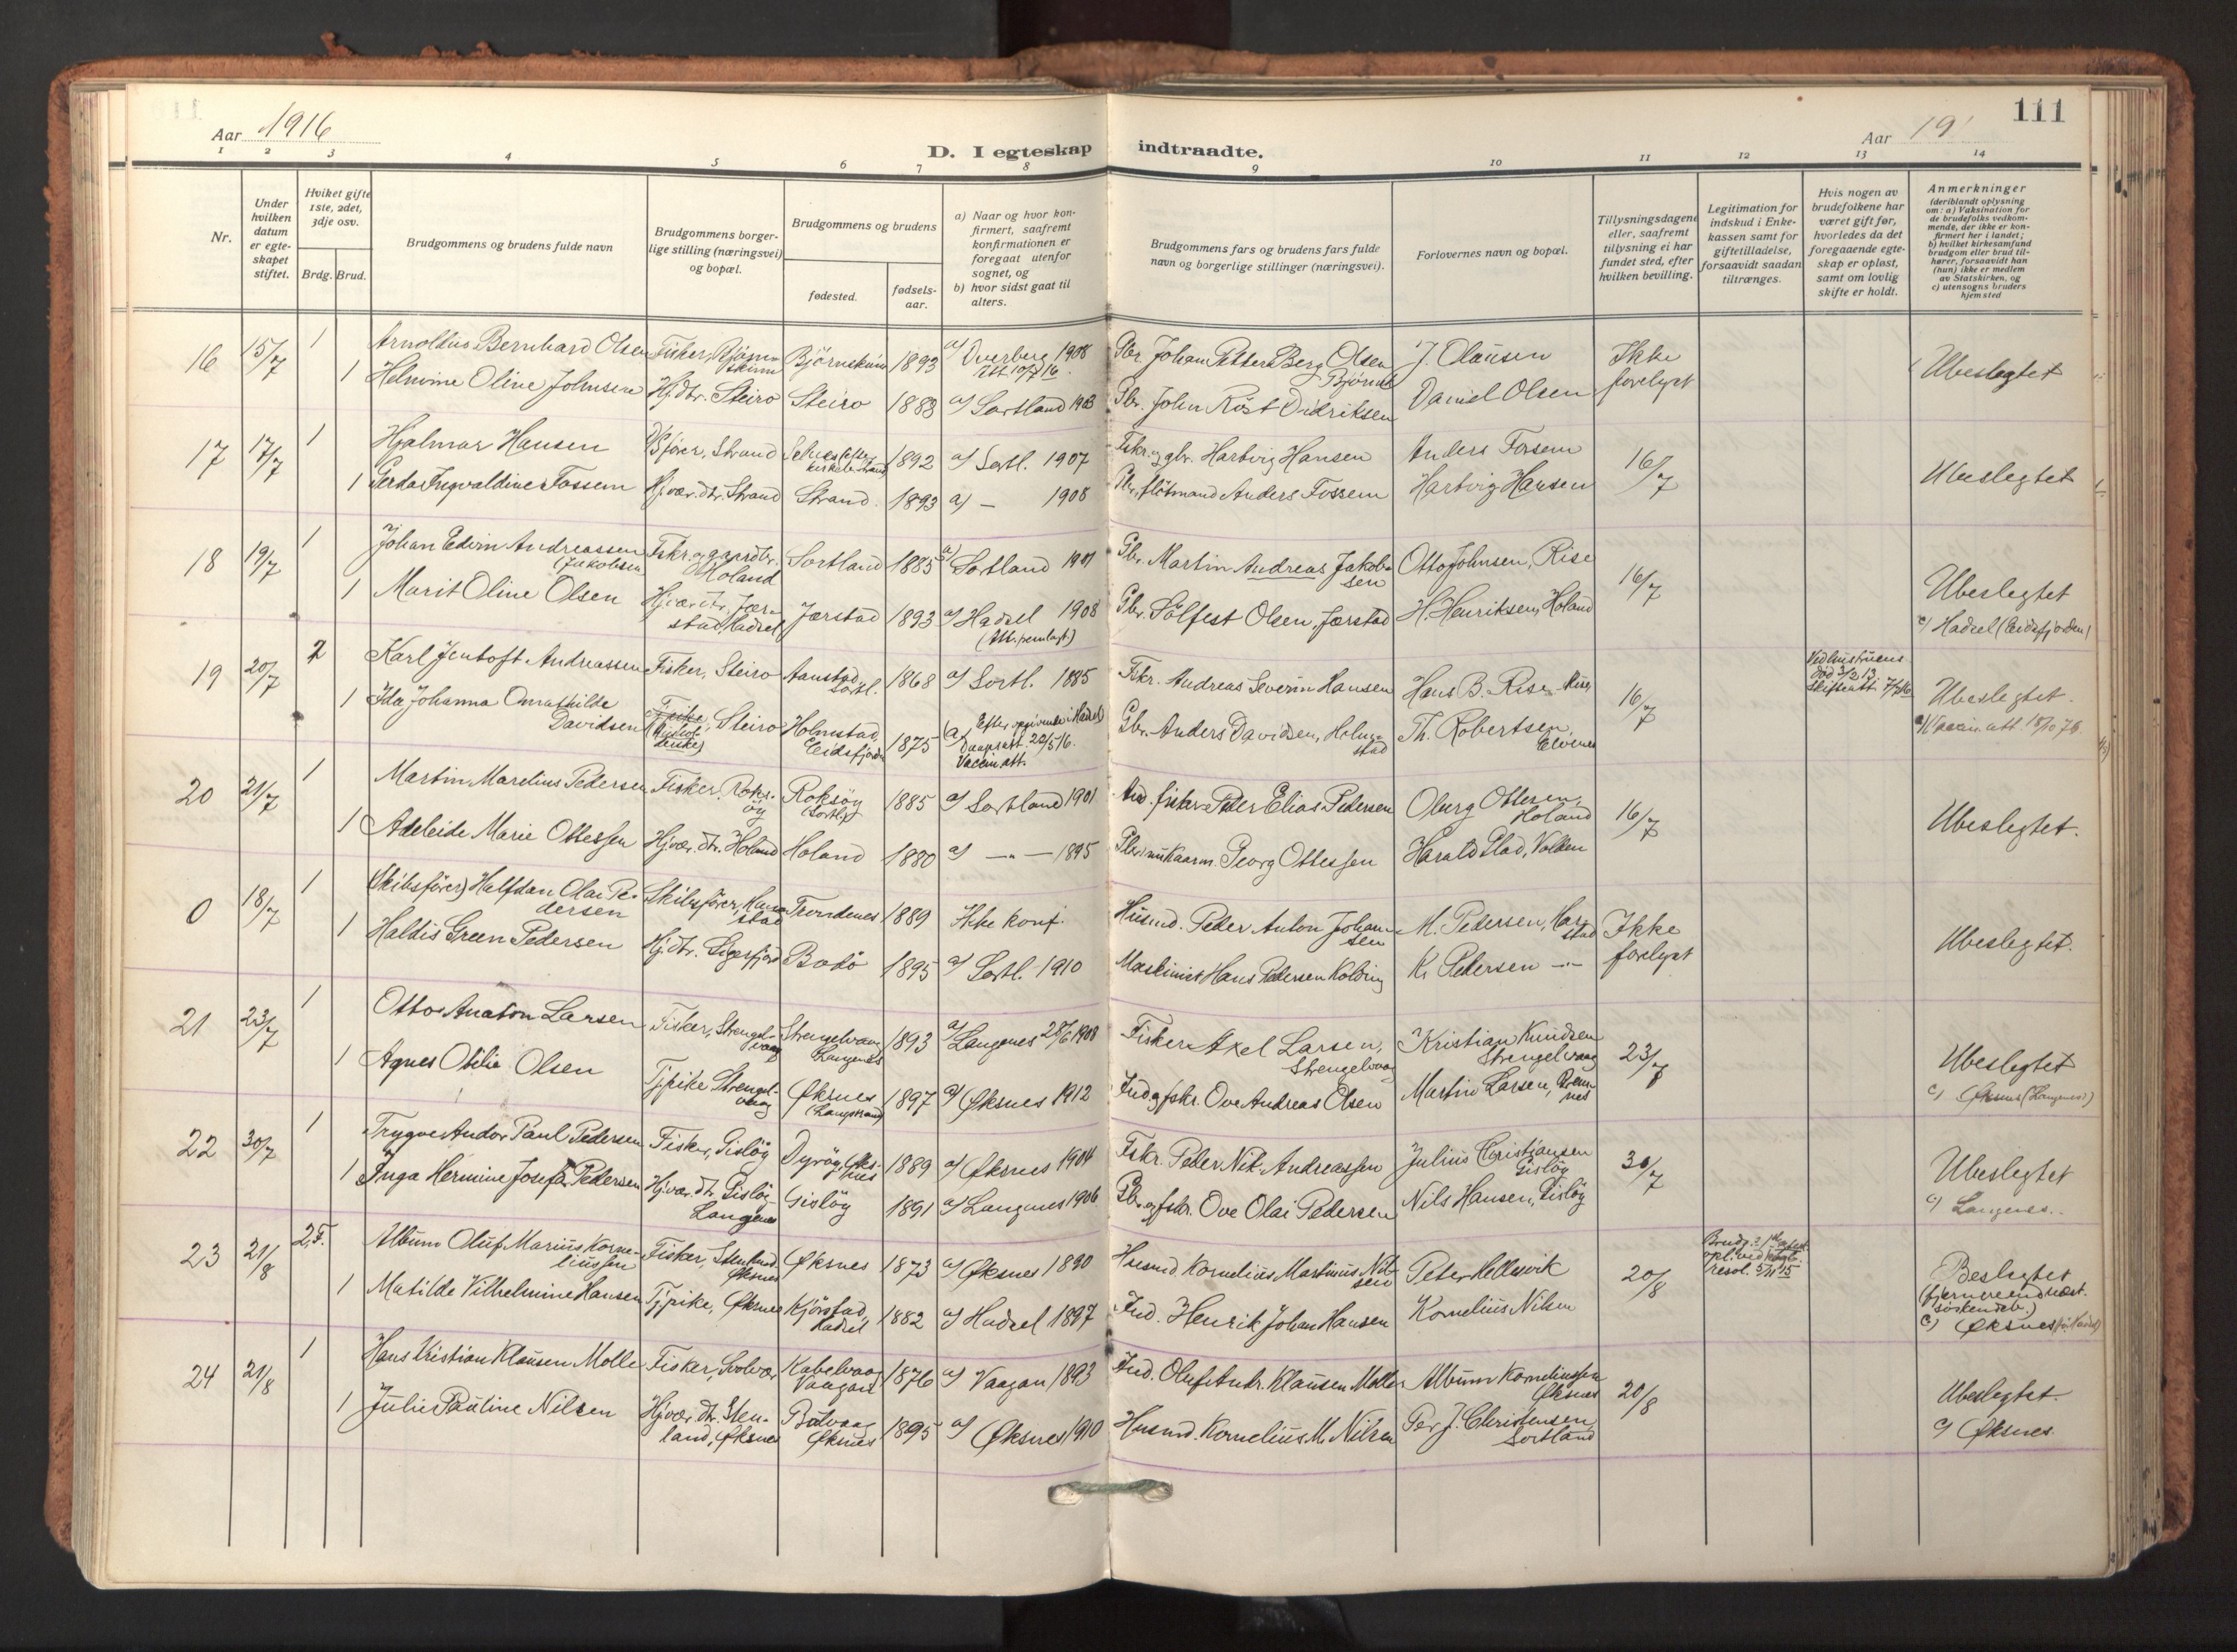 111
Aar 1916
Aar 19
D. I egteskap indtraadte.
1 2 3 4 5 6 7 8 9 10 11 12 13 14
Nr.
Under hvilken datum er egteskapet stiftet.
Hviket gifte 1ste, 2det, 3dje osv.
Brdg. Brud.
Brudgommens og brudens fulde navn
Brudgommens borgerlige stilling (næringsvei) og bopæl.
Brudgommens og brudens
fødested.
fødselsaar.
a) Naar og hvor konfirmert, saafremt konfirmationen er foregaat utenfor sognet, og
b) hvor sidst gaat til alters.
Brudgommens fars og brudens fars fulde navn og borgerlige stillinger (næringsvei).
Forlovernes navn og bopæl.
Tillysningsdagene eller, saafremt tillysning ei har fundet sted, efter hvilken bevilling.
Legitimation for indskud i Enkekassen samt for giftetilladelse, forsaavidt saadan tiltrænges.
Hvis nogen av brudefolkene har været gift før, hvorledes da det foregaaende egteskap er opløst, samt om lovlig skifte er holdt.
Anmerkninger (deriblandt oplysning om: a) Vaksination for de brudefolks vedkommende, der ikke er konfirmert her i landet; b) hvilket kirkesamfund brudgom eller brud tilhører, forsaavidt han (hun) ikke er medlem av Statskirken, og c) utensogns bruders hjemsted
16 15/7 1 Arnoldus Bernhard Olsen Fisker, Bjørnskinn Bjørnskinn 1893 a) Dverberg 1908 Att. 10/7 16. Gbr. Johan Petter Berg Olsen J. Olausen Ikke forelyst Ubeslegtet
1 Helmine Oline Johnsen Hj.dtr. Steiro Steiro 1888 a) Sortland 1903 Gbr. John Røst Didriksen Daniel Olsen
17 17/7 1 Hjalmar Hansen D/Sfører, Strand 1892 a) Sortl. 1907 Fskr. og gbr. Hartvig Hansen Anders Fossem 16/7 Ubeslegtet
1 Gerda Ingvaldine Fossem Hj.vær. dtr. Strand Strand 1893 a) — 1908 Gbr., flötmand Anders Fossem Hartvig Hansen
18 19/7 1 Johan Edvin Andreassen (Jakobsen Fskr. og gaardbr. Holand Sortland 1885 a) Sortland 1901 Gbr. Martin Andreas Jakobsen Otto Johnsen, Rise 16/7 Ubeslegtet
1 Marit Oline Olsen Hj.vær. dtr. Jærstad, Hadsel Jærstad 1893 a) Hadsel 1908 (Att. fremlagt) Gbr. Solfest Olsen, Jærstad H. Henriksen, Holand c) Hadsel (Eidsfjorden)
19 20/7 2 Karl Jentoft Andreassen Fisker, Steiro Aanstad, Sortl. 1868 a) Sortl. 1885 Fskr. Andreas Severin Hansen Hans B. Rise, Rise 16/7 Skifteatt. Ubeslegtet.
1 Ida Johanna Davidsen Steiro Holmstad, Eidsfjorden 1875 (a) Efter opgivende i Hadsel Daapsatt. 22/5 16. Vaccin.att. Gbr. Anders Davidsen, Holmstad Th. Robertsen,
20 21/7 1 Martin Marelius Pedersen Fisker, Roksøy Roksøy (Sortl.) 1885 a) Sortland 1901 Ind. fisker Peder Elias Pedersen Oberg Ottesen, Holand 16/7 Ubeslegtet.
1 Adeleide Marie Ottessen Hj.vær. dtr. Holand Holand 1880 a) —"— 1895 Gbr. nu kaarm. Georg Ottessen Harald Olad, Valden
0 18/7 1 (Skibsfører) Halfdan Olai Pedersen Skibsfører, Trondenes 1889 Ikke konf. Husmd. Peder Anton Johansen M. Pedersen, Harstad Ikke forelyst Ubeslegtet.
1 Haldis Green Pedersen Hj.dtr. Sigerfjord Bodø 1895 a) Sortl. 1910 Maskinist Hans Pedersen Kolding K. Pedersen —"—
21 23/7 1 Otto Anaton Larsen Fisker, Strengelvaag Strengelvaag Langenes 1893 a) Langenes 28/6 1908 Fisker Axel Larsen, Strengelvaag Kristian Knudsen Strengelvaag 23/7 Ubeslegtet
1 Agnes Otilie Olsen Tj.pike Strengelvaag Øksnes (Langstrand) 1897 a) Øksnes 1912 Ind. og fskr. Ove Andreas Olsen Martin Larsen, c) Øksnes (Langenes)
22 30/7 1 Trygve Andor Paul Pedersen Fisker, Gisløy Dyrøy, Øksnes 1889 a) Øksnes 1904 Fskr. Peder Nik. Andreassen Julius Christiansen Gisløy 30/7 Ubeslegtet
1 Inga Hermine Josefa Pedersen Hj.vær. dtr. Gisløy Langenes Gisløy 1891 a) Langenes 1906 Gbr. og fskr. Ove Olai Pedersen Nils Hansen, Gisløy c) Langenes.
23 21/8 2, F. Album Oluf Marius Korneliussen Fisker, Stenland Øksnes Øksnes 1873 a) Øksnes 1890 Husmd. Kornelius Martinus Nilsen Peter Hellesvik 20/8 resol. 5/11 15 Beslegtet (fjernere end næst. søskendeb.)
1 Matilde Vilhelmine Hansen Tj.pike, Øksnes Kjørstad, Hadsel 1882 a) Hadsel 1897 Ind. Henrik Johan Hansen Kornelius Nilsen c) Øksnes
24 21/8 1 Hans Kristian Klausen Molle Fisker, Svolvær Kabelvaag Vaagan 1876 a) Vaagan 1893 Ind. Oluf Andr. Klausen Molle Album Korneliussen Øksnes 20/8 Ubeslegtet.
1 Julie Pauline Nilsen Hj.vær. dtr. Stenland, Øksnes Øksnes 1895 a) Øksnes 1910 Husmd. Kornelius M. Nilsen Per J. Christensen Sortland c) Øksnes.